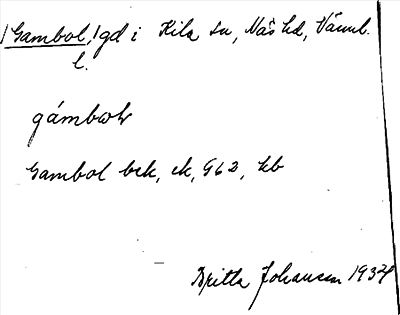 /Gambol,/ gd i Kila sn, Näs hd, Värml.
l.
gámbωl
Gambol bek, ek, G62, kb
Britta Johansson 1934